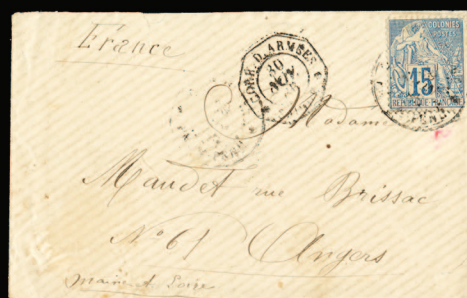 France
CORR. D. ARMÉES
30
NOV
COLONIES
POSTES
15
REPUBLIQUE FRANCAISE
Madame
Maudet rue Brissac
N° 61 Angers
Maine et Loire